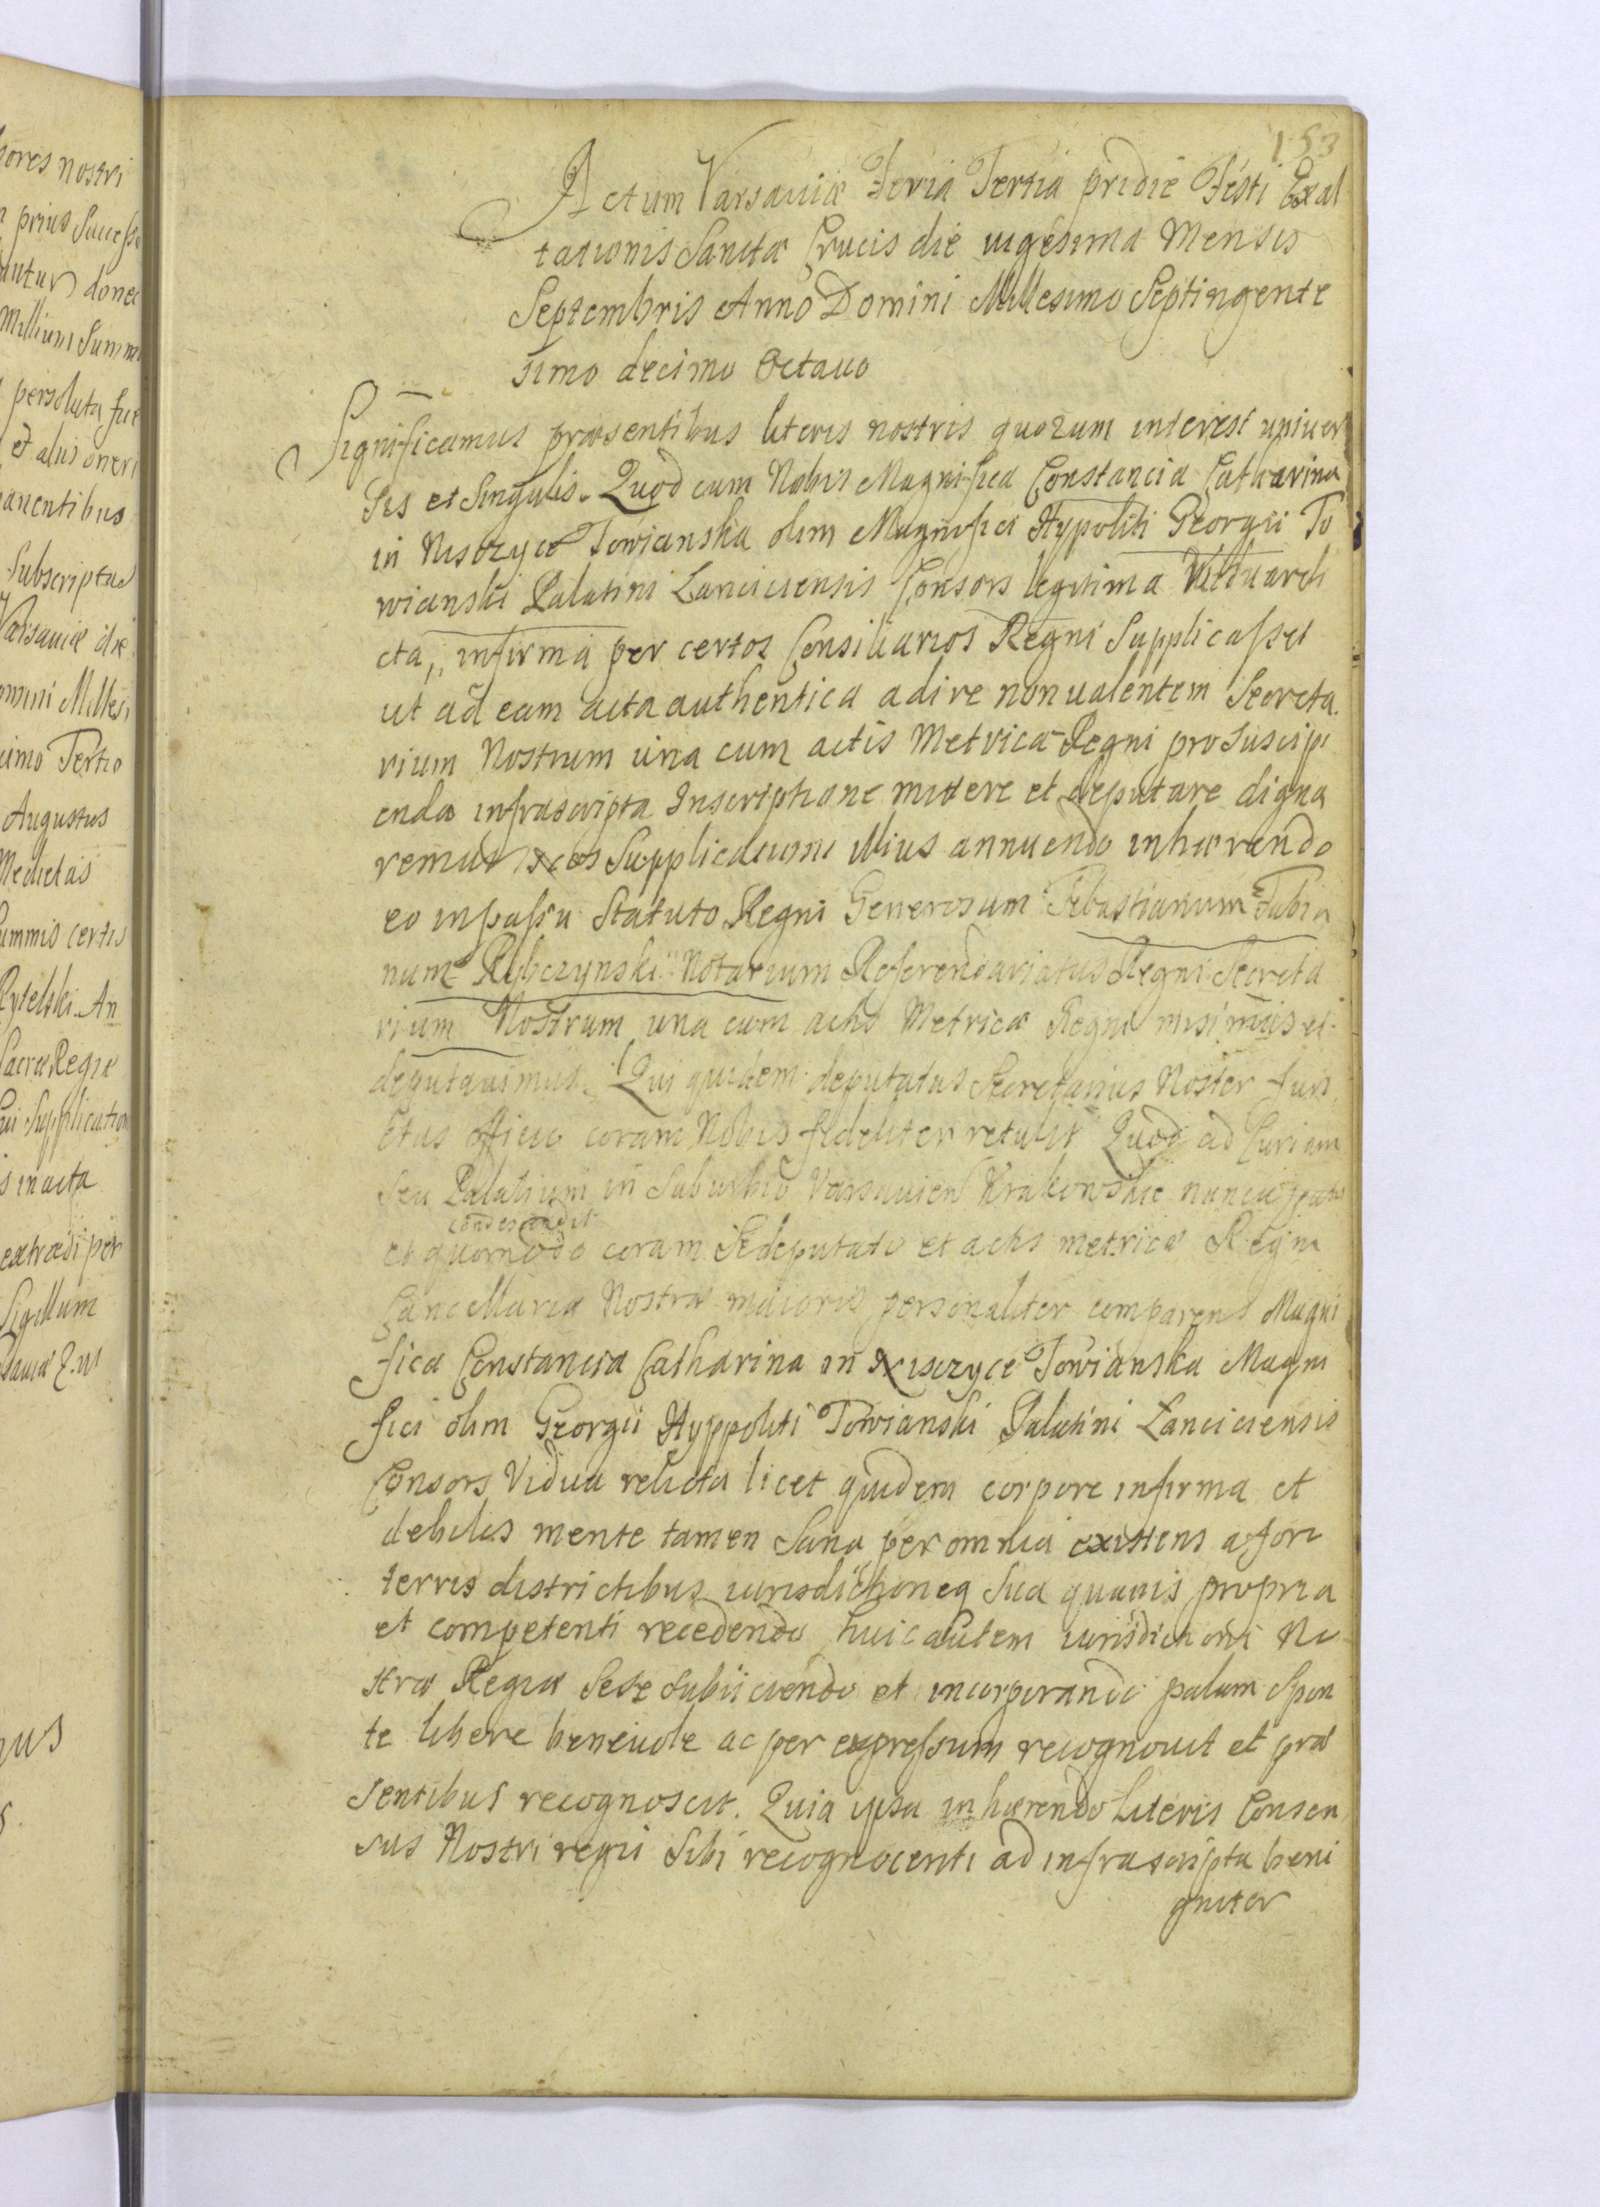 153
Actum Varsaviæ Feria Tertia pridie Festi Exal
tationis Sanctæ Crucis die vigesima Mensis
Septembris Anno Domini Millesimo Septingente
simo decimo Octavo
Significamus præsentibus literis nostris quorum interest univer
sis et Singulis. Quod cum Nobis Magnifica Constancia Catharina
in Nisczyce Towianska olim Magnifici Hypoliti Georgii To
wianski Palatini Lanciciensis Consors legitima
cta, infirma per certos Consiliarios Regni Supplicasset
ut ad eam acta authentica adire non valentem Secreta
rium Nostrum una cum actis Metricæ Regni pro suscipi
enda infrascripta Inscriptione mittere et deputare digna
remur Supplicationi illius annuendo inhærendo
eo in passu Statuto Regni Generosum Sebastianum Fabia
num Rybczynski Notarium Referendariatus Regni Secreta
rium Nostrum una cum actis Metricæ Regni misimus et
deputavimus. Qui quidem deputatus Secretarius Noster fun
ctus officio coram Nobis fideliter retulit Quod ad Curiam
Seu Palatium in Suburbio Varsavien Krakowskie nuncupato
condescendit
et quomodo coram Se deputato et actis metricæ Regni
Cancellariæ Nostræ maioris personaliter comparens Magni
fica Constancia Catharina in Nisczyce Towianska Magni
fici olim Georgii Hyppoliti Towianski Palatini Lanciciensis
Consors Vidua relicta licet quidem corpore infirma et
debilis mente tamen Sana per omnia existens a fori
terris districtibus iurisdictioneq sua quavis propria
et competenti recedendo huic autem iurisdictioni No
stræ Regiæ Sese subiiciendo et incorporando palam Spon
te libere benevole ac per expressum recognovit et præ
sentibus recognoscit. Quia ipsa inhærendo literis Consen
sus Nostri regii Sibi recognocenti ad infrascripta beni
gniter